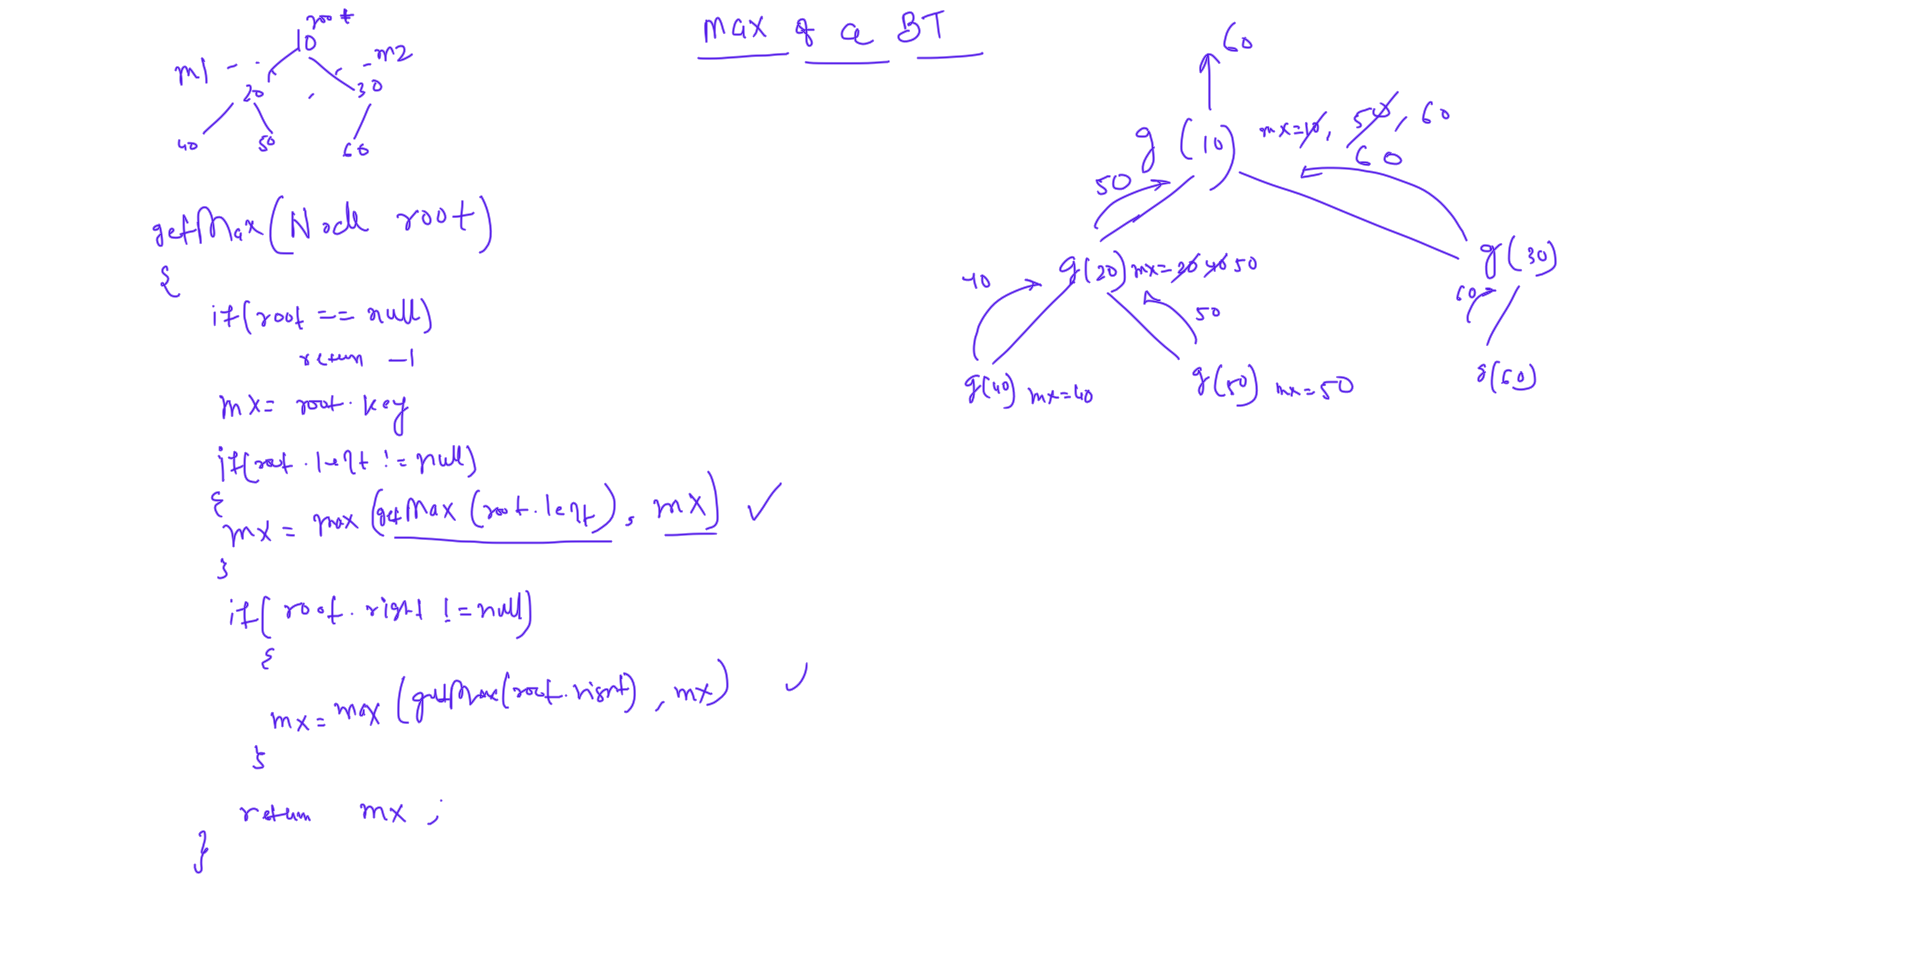 max of a BT
root
10
m1
m2
20
30
40
50
60
getMax(Node root)
{
if(root == null)
return -1
mx= root.key
if(root.left != null)
{
mx = max (getMax (root.left), mx) ✓
}
if( root.right != null)
{
mx = max (getMax(root.right), mx) ✓
}
return mx ;
}
60
g (10) mx=10, 50, 60
50
60
g(20) mx= 20 40 50
g(30)
40
50
60
g(40) mx=40
g(50) mx=50
g(60)